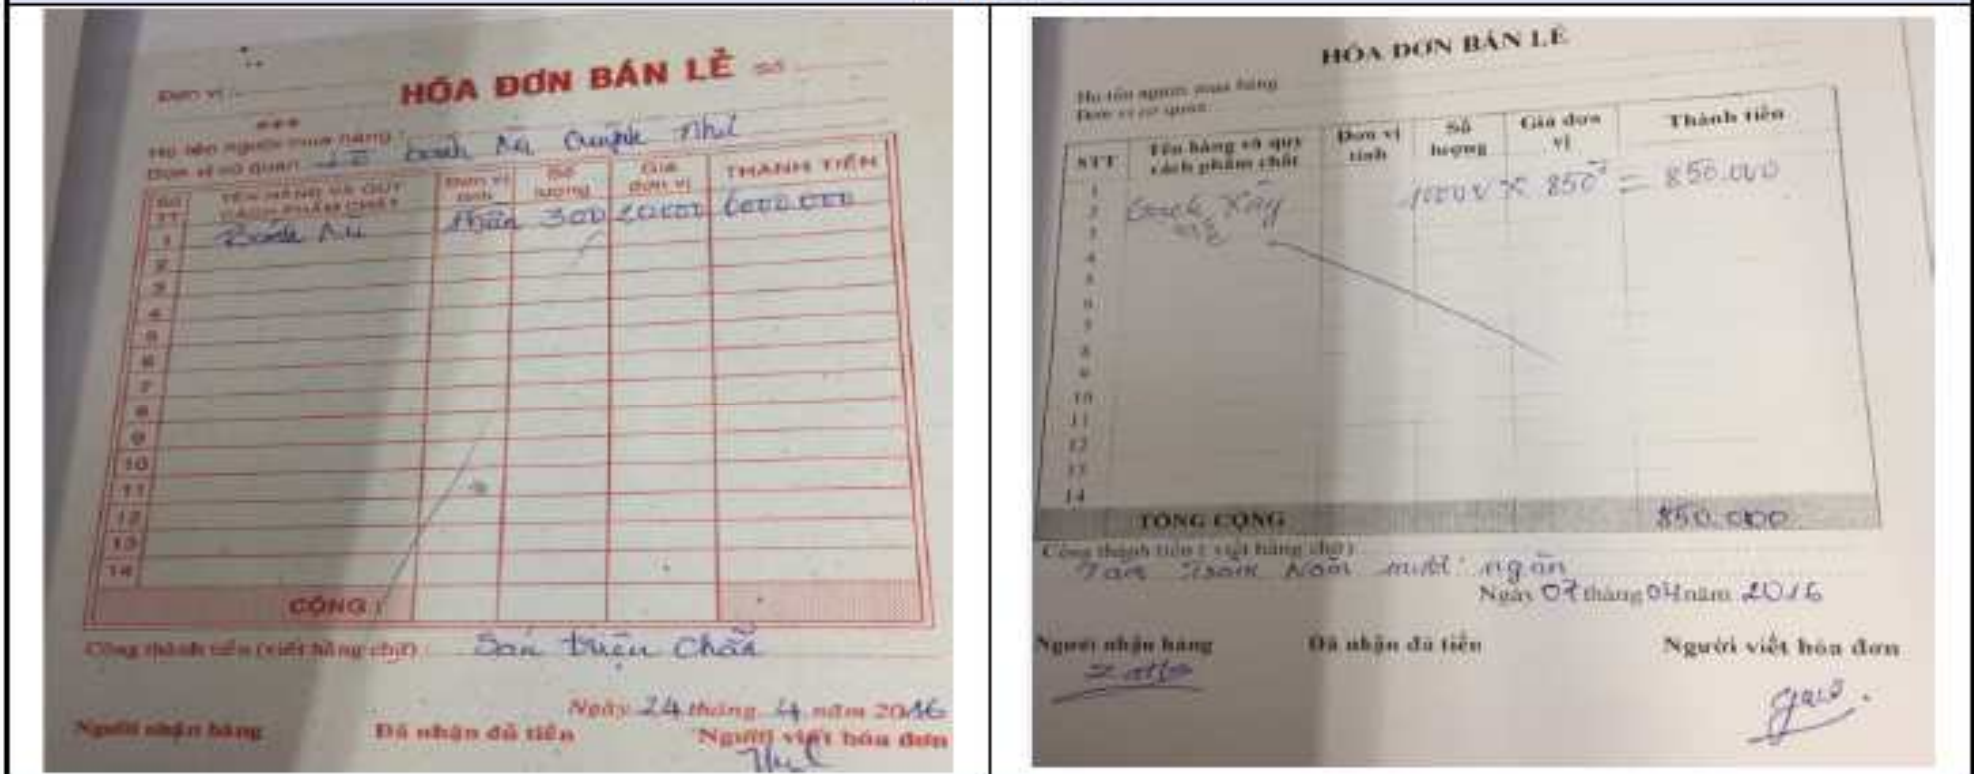 HÓA ĐƠN BÁN LẺ Số
Đơn vị :
Họ tên người mua hàng :
Đơn vị cơ quan
Số TT
TÊN HÀNG VÀ QUY CÁCH PHẨM CHẤT
Đơn vị tính
Số lượng
Giá đơn vị
THÀNH TIỀN
1 Bánh 300 20000 6000.000
2
3
4
5
6
7
8
9
10
11
12
13
14
CỘNG :
Công thành tiền (viết bằng chữ) : Sáu triệu chẵn
Ngày 24 tháng 4 năm 2016
Người nhận hàng Đã nhận đủ tiền Người viết hóa đơn
HÓA ĐƠN BÁN LẺ
Họ tên người mua hàng
Đơn vị cơ quan
STT
Tên hàng và quy cách phẩm chất
Đơn vị tính
Số lượng
Giá đơn vị
Thành tiền
1
2 850 = 850.000
3
4
5
6
7
8
9
10
11
12
13
14
TỔNG CỘNG 850.000
Công thành tiền ( viết bằng chữ)
Tám trăm năm mươi ngàn
Ngày 07 tháng 04 năm 2016
Người nhận hàng Đã nhận đủ tiền Người viết hóa đơn